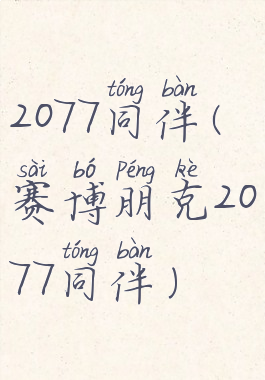 tóng bàn
2077同伴(
sài bó Péng kè
赛博朋克20
tóng bàn
77同伴)